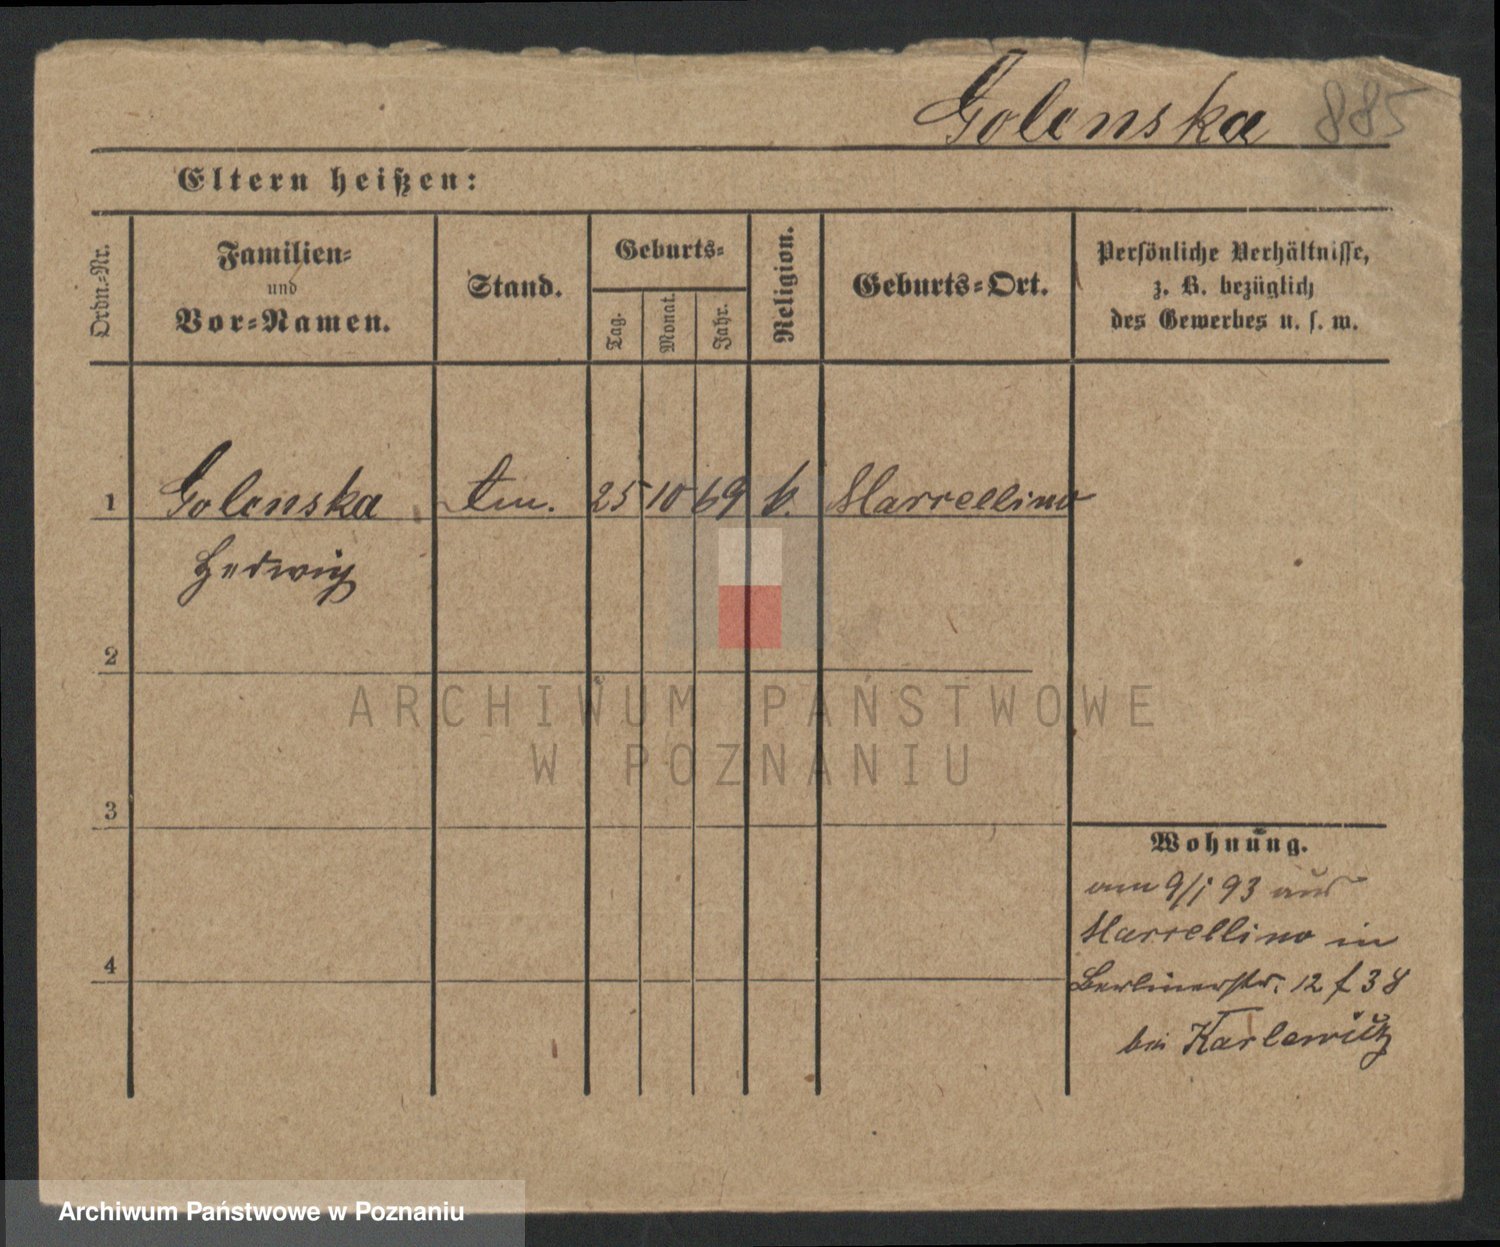 Golenska 885
Eltern heißen:
Ordn.-Nr.
Familien-
und
Vor-Namen.
Stand.
Geburts-
Tag.
Monat.
Jahr.
Religion.
Geburts-Ort.
Persönliche Verhältnisse,
z. B. bezüglich
des Gewerbes u. s. w.
1 Golenska 25 10 69 k. Marcellino
Hedwig
2
3
4
Wohnung.
am 9/1 93 aus
Marcellino in
Berlinerstr. 12
bei Karlewicz
ARCHIWUM PAŃSTWOWE
W POZNANIU
Archiwum Państwowe w Poznaniu